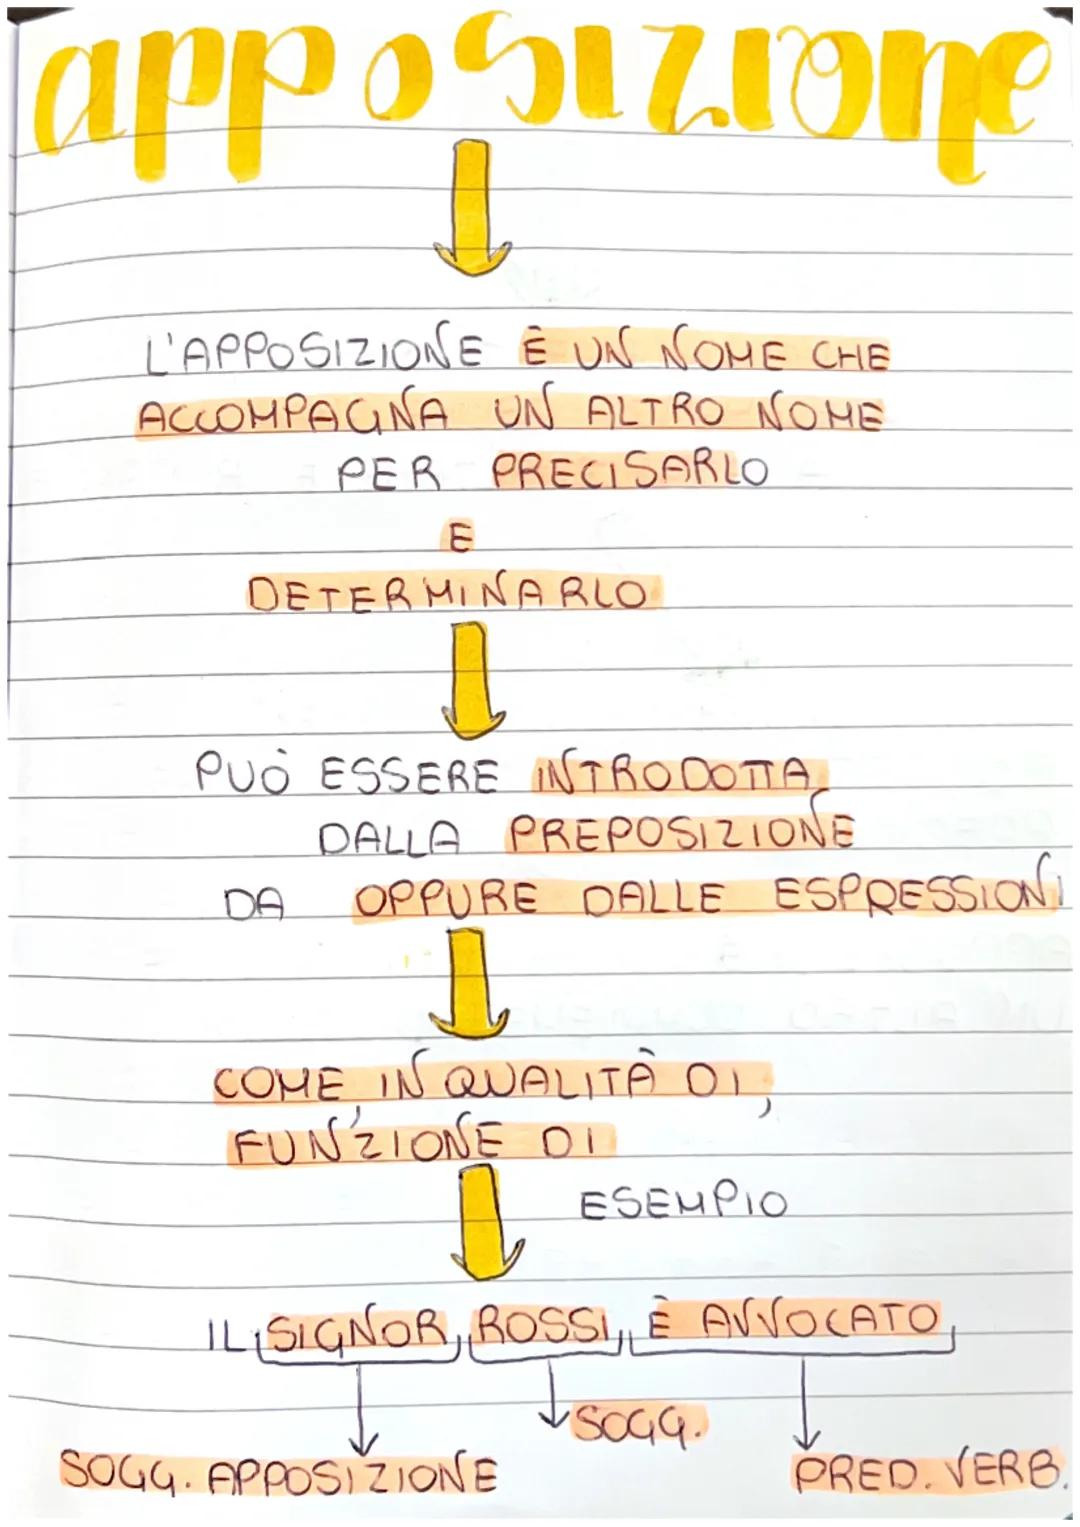 apposizione
L'APPOSIZIONE È UN NOME CHE
ACCOMPAGNA UN ALTRO NOME
PER PRECISARLO
E
DETERMINARLO
PUÒ ESSERE INTRODOTTA
DALLA PREPOSIZIONE
DA OPPURE DALLE ESPRESSIONI
COME, IN QUALITÀ DI,
FUNZIONE DI
ESEMPIO
IL SIGNOR ROSSI È AVVOCATO
SOGG.
SOGG. APPOSIZIONE PRED. VERB.